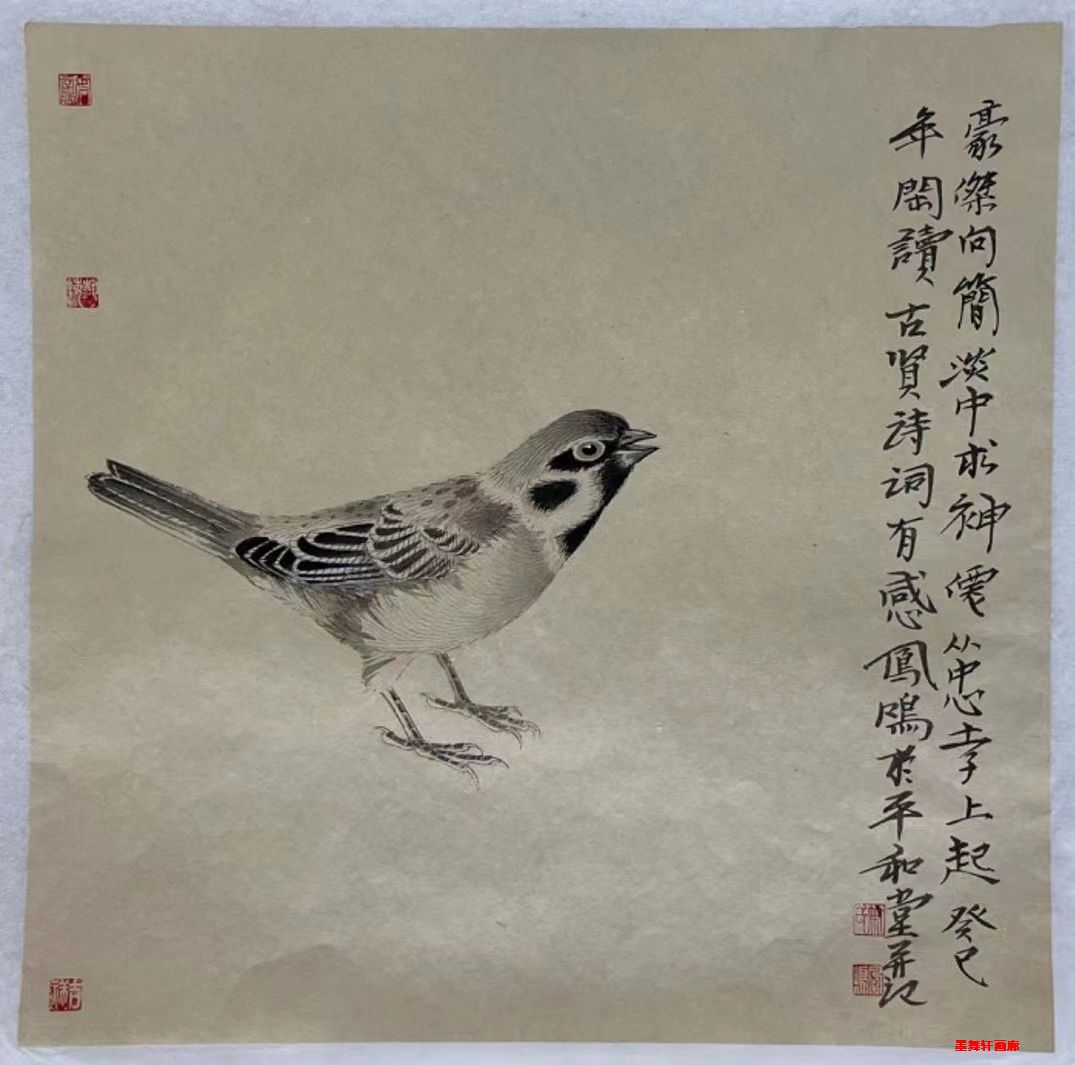 豪傑向簡淡中求神僊從忠孝上起癸巳
年閑讀古賢詩詞有感鳳鳴於平和堂并記
墨舞轩画廊